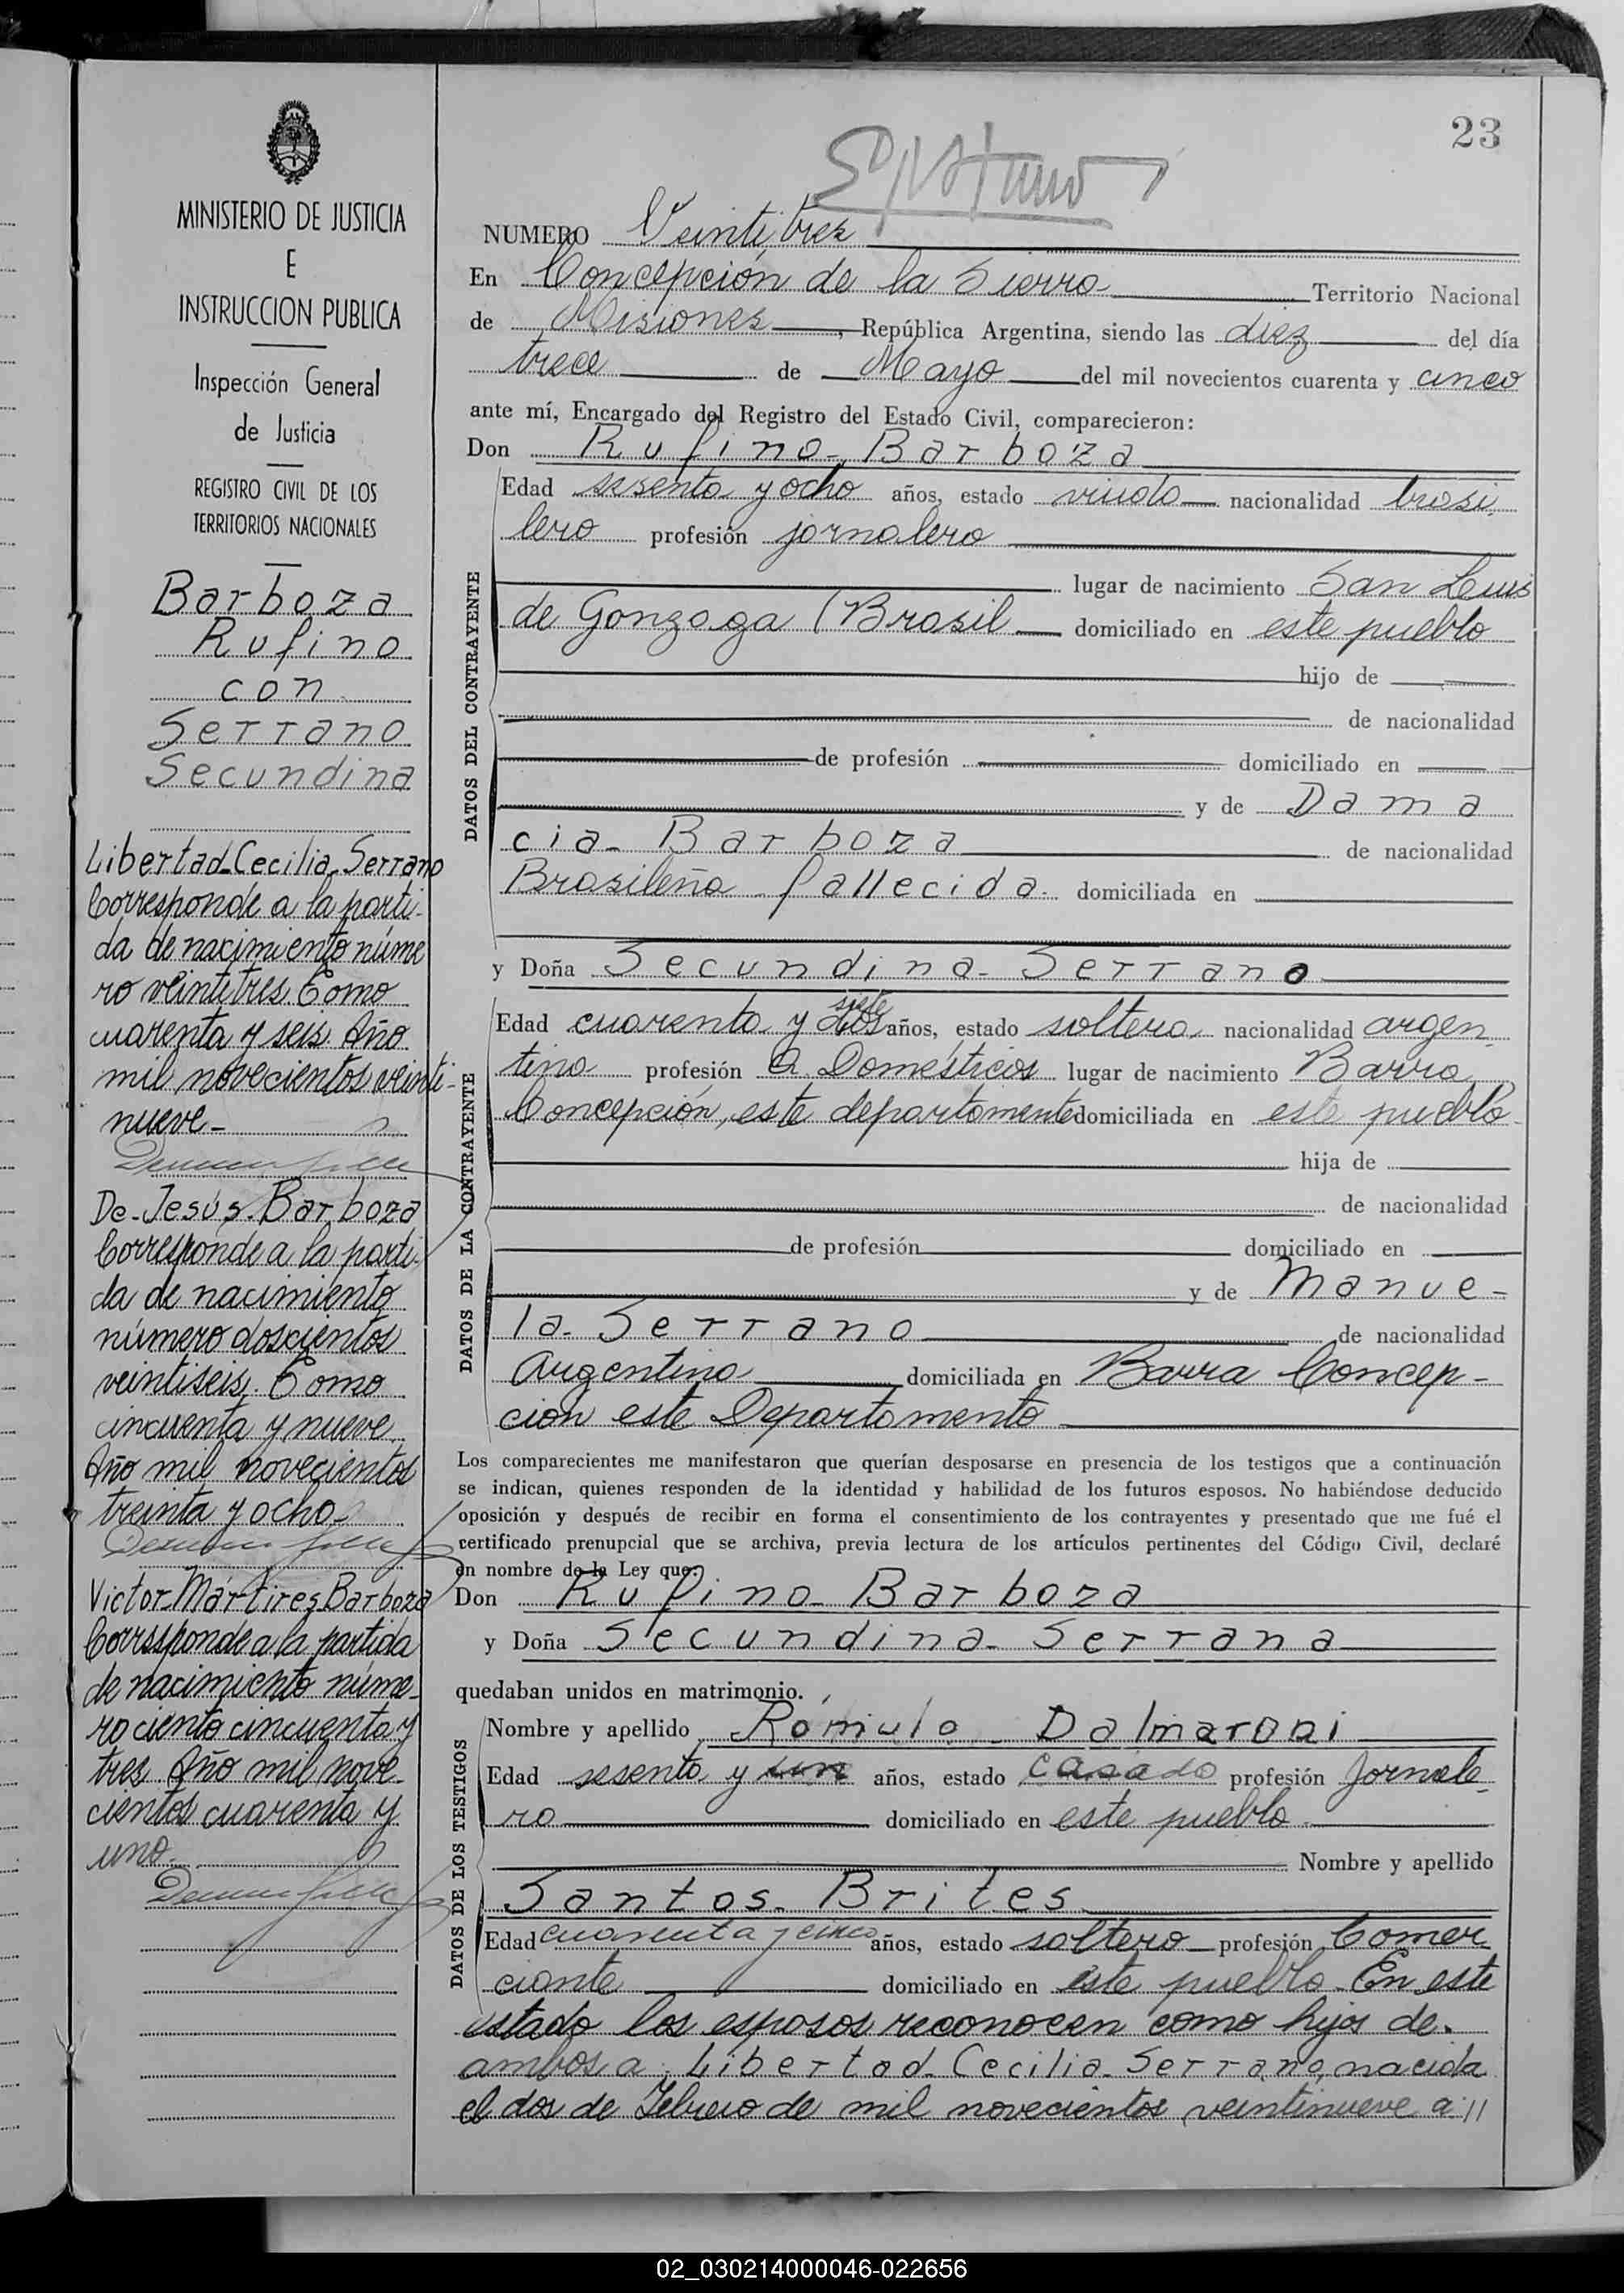 23
NUMERO Veinti tres
En Concepción de la Sierra Territorio Nacional
de Misiones, República Argentina, siendo las diez del día
trece de Mayo del mil novecientos cuarenta y cinco
ante mí, Encargado del Registro del Estado Civil, comparecieron:
Don Rufino Barboza
DATOS DEL CONTRAYENTE
Edad sesenta y ocho años, estado viudo nacionalidad brasi
lero profesión jornalero
lugar de nacimiento San Luis
de Gonzaga (Brasil domiciliado en este pueblo
hijo de
de nacionalidad
de profesión domiciliado en
y de Dama
cia Barboza de nacionalidad
Brasileña fallecida domiciliada en
y Doña Secundina Serrano
DATOS DE LA CONTRAYENTE
siete
Edad cuarenta y dos años, estado soltera nacionalidad argen
tina profesión Q. Domésticos lugar de nacimiento Barra
Concepción, este departamento domiciliada en este pueblo
hija de
de nacionalidad
de profesión domiciliado en
y de Manue-
la Serrano de nacionalidad
Argentina domiciliada en Barra Concep-
cion este Departamento
Los comparecientes me manifestaron que querían desposarse en presencia de los testigos que a continuación
se indican, quienes responden de la identidad y habilidad de los futuros esposos. No habiéndose deducido
oposición y después de recibir en forma el consentimiento de los contrayentes y presentado que me fué el
certificado prenupcial que se archiva, previa lectura de los artículos pertinentes del Código Civil, declaré
en nombre de la Ley que:
Don Rufino Barboza
y Doña Secundina Serrana
quedaban unidos en matrimonio.
DATOS DE LOS TESTIGOS
Nombre y apellido Romulo Dalmaroni
Edad sesenta y un años, estado casado profesión Jornale
ro domiciliado en este pueblo
Nombre y apellido
Santos Brites
Edad cuarenta y cinco años, estado soltero profesión Comer
ciante domiciliado en este pueblo. En este
estado los esposos reconocen como hijos de
ambos a: Libertad Cecilia Serrano, nacida
el dos de Febrero de mil novecientos veintinueve a //
MINISTERIO DE JUSTICIA
E
INSTRUCCION PUBLICA
Inspección General
de Justicia
REGISTRO CIVIL DE LOS
TERRITORIOS NACIONALES
Barboza
Rufino
con
Serrano
Secundina
Libertad Cecilia Serrano
Corresponde a la parti-
da de nacimiento núme
ro veintitres. Tomo
cuarenta y seis. Año
mil novecientos veinti-
nueve-
De Jesús Barboza
Corresponde a la parti-
da de nacimiento
número doscientos
veintiseis. Tomo
cincuenta y nueve.
Año mil novecientos
treinta y ocho-
Victor Mártires Barboza
Corresponde a la partida
de nacimiento núme-
ro ciento cincuenta y
tres. Año mil nove-
cientos cuarenta y
uno.
02_030214000046-022656